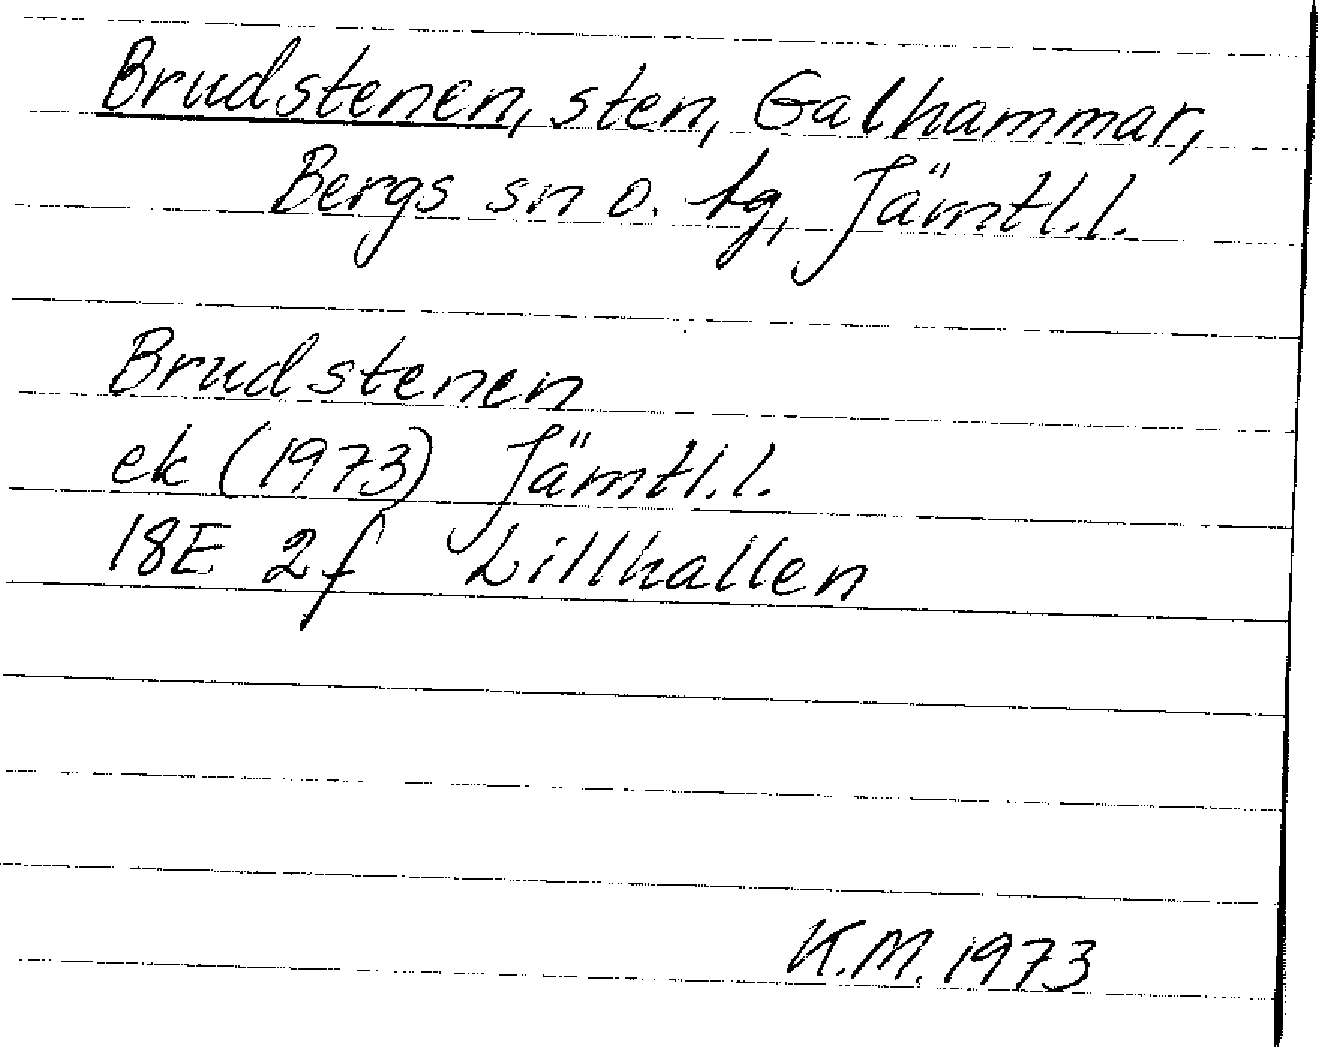 Brudstenen, sten, Galhammar,
Bergs sn o. tg, Jämtl.l.
Brudstenen
ek (1973) Jämtl.l.
18E 2f Lillhallen
K.M. 1973